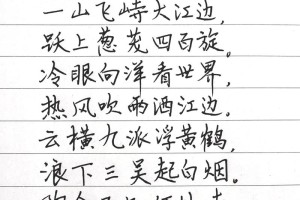 一山飞峙大江边,
跃上葱茏四百旋。
冷眼向洋看世界,
热风吹雨洒江边。
云横九派浮黄鹤,
浪下三吴起白烟。